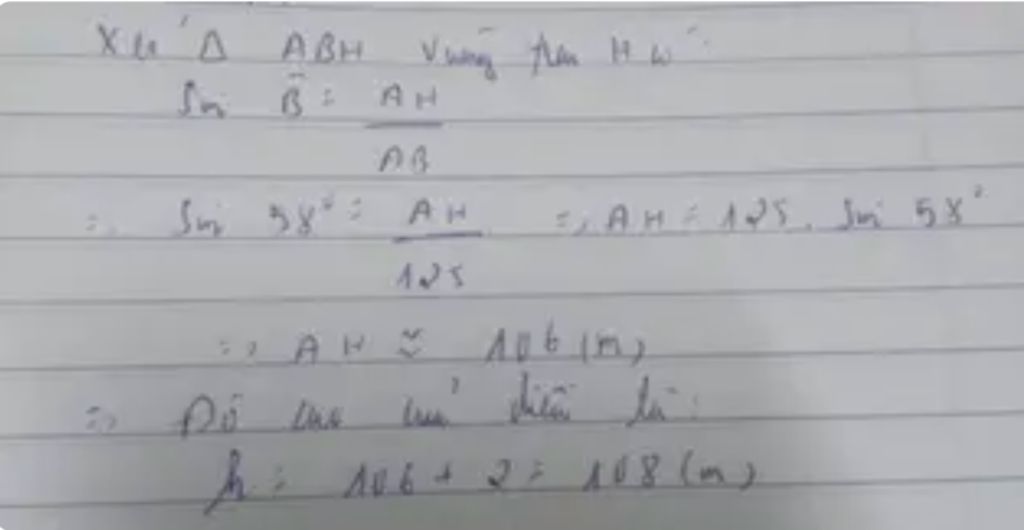 Xét Δ ABH vuông tại H có:
Sin B̂ = AH
AB
=> Sin 58° = AH => AH = 125 . Sin 58°
125
=> AH ≈ 106 (m)
=> Độ cao của diều là:
h = 106 + 2 = 108 (m)